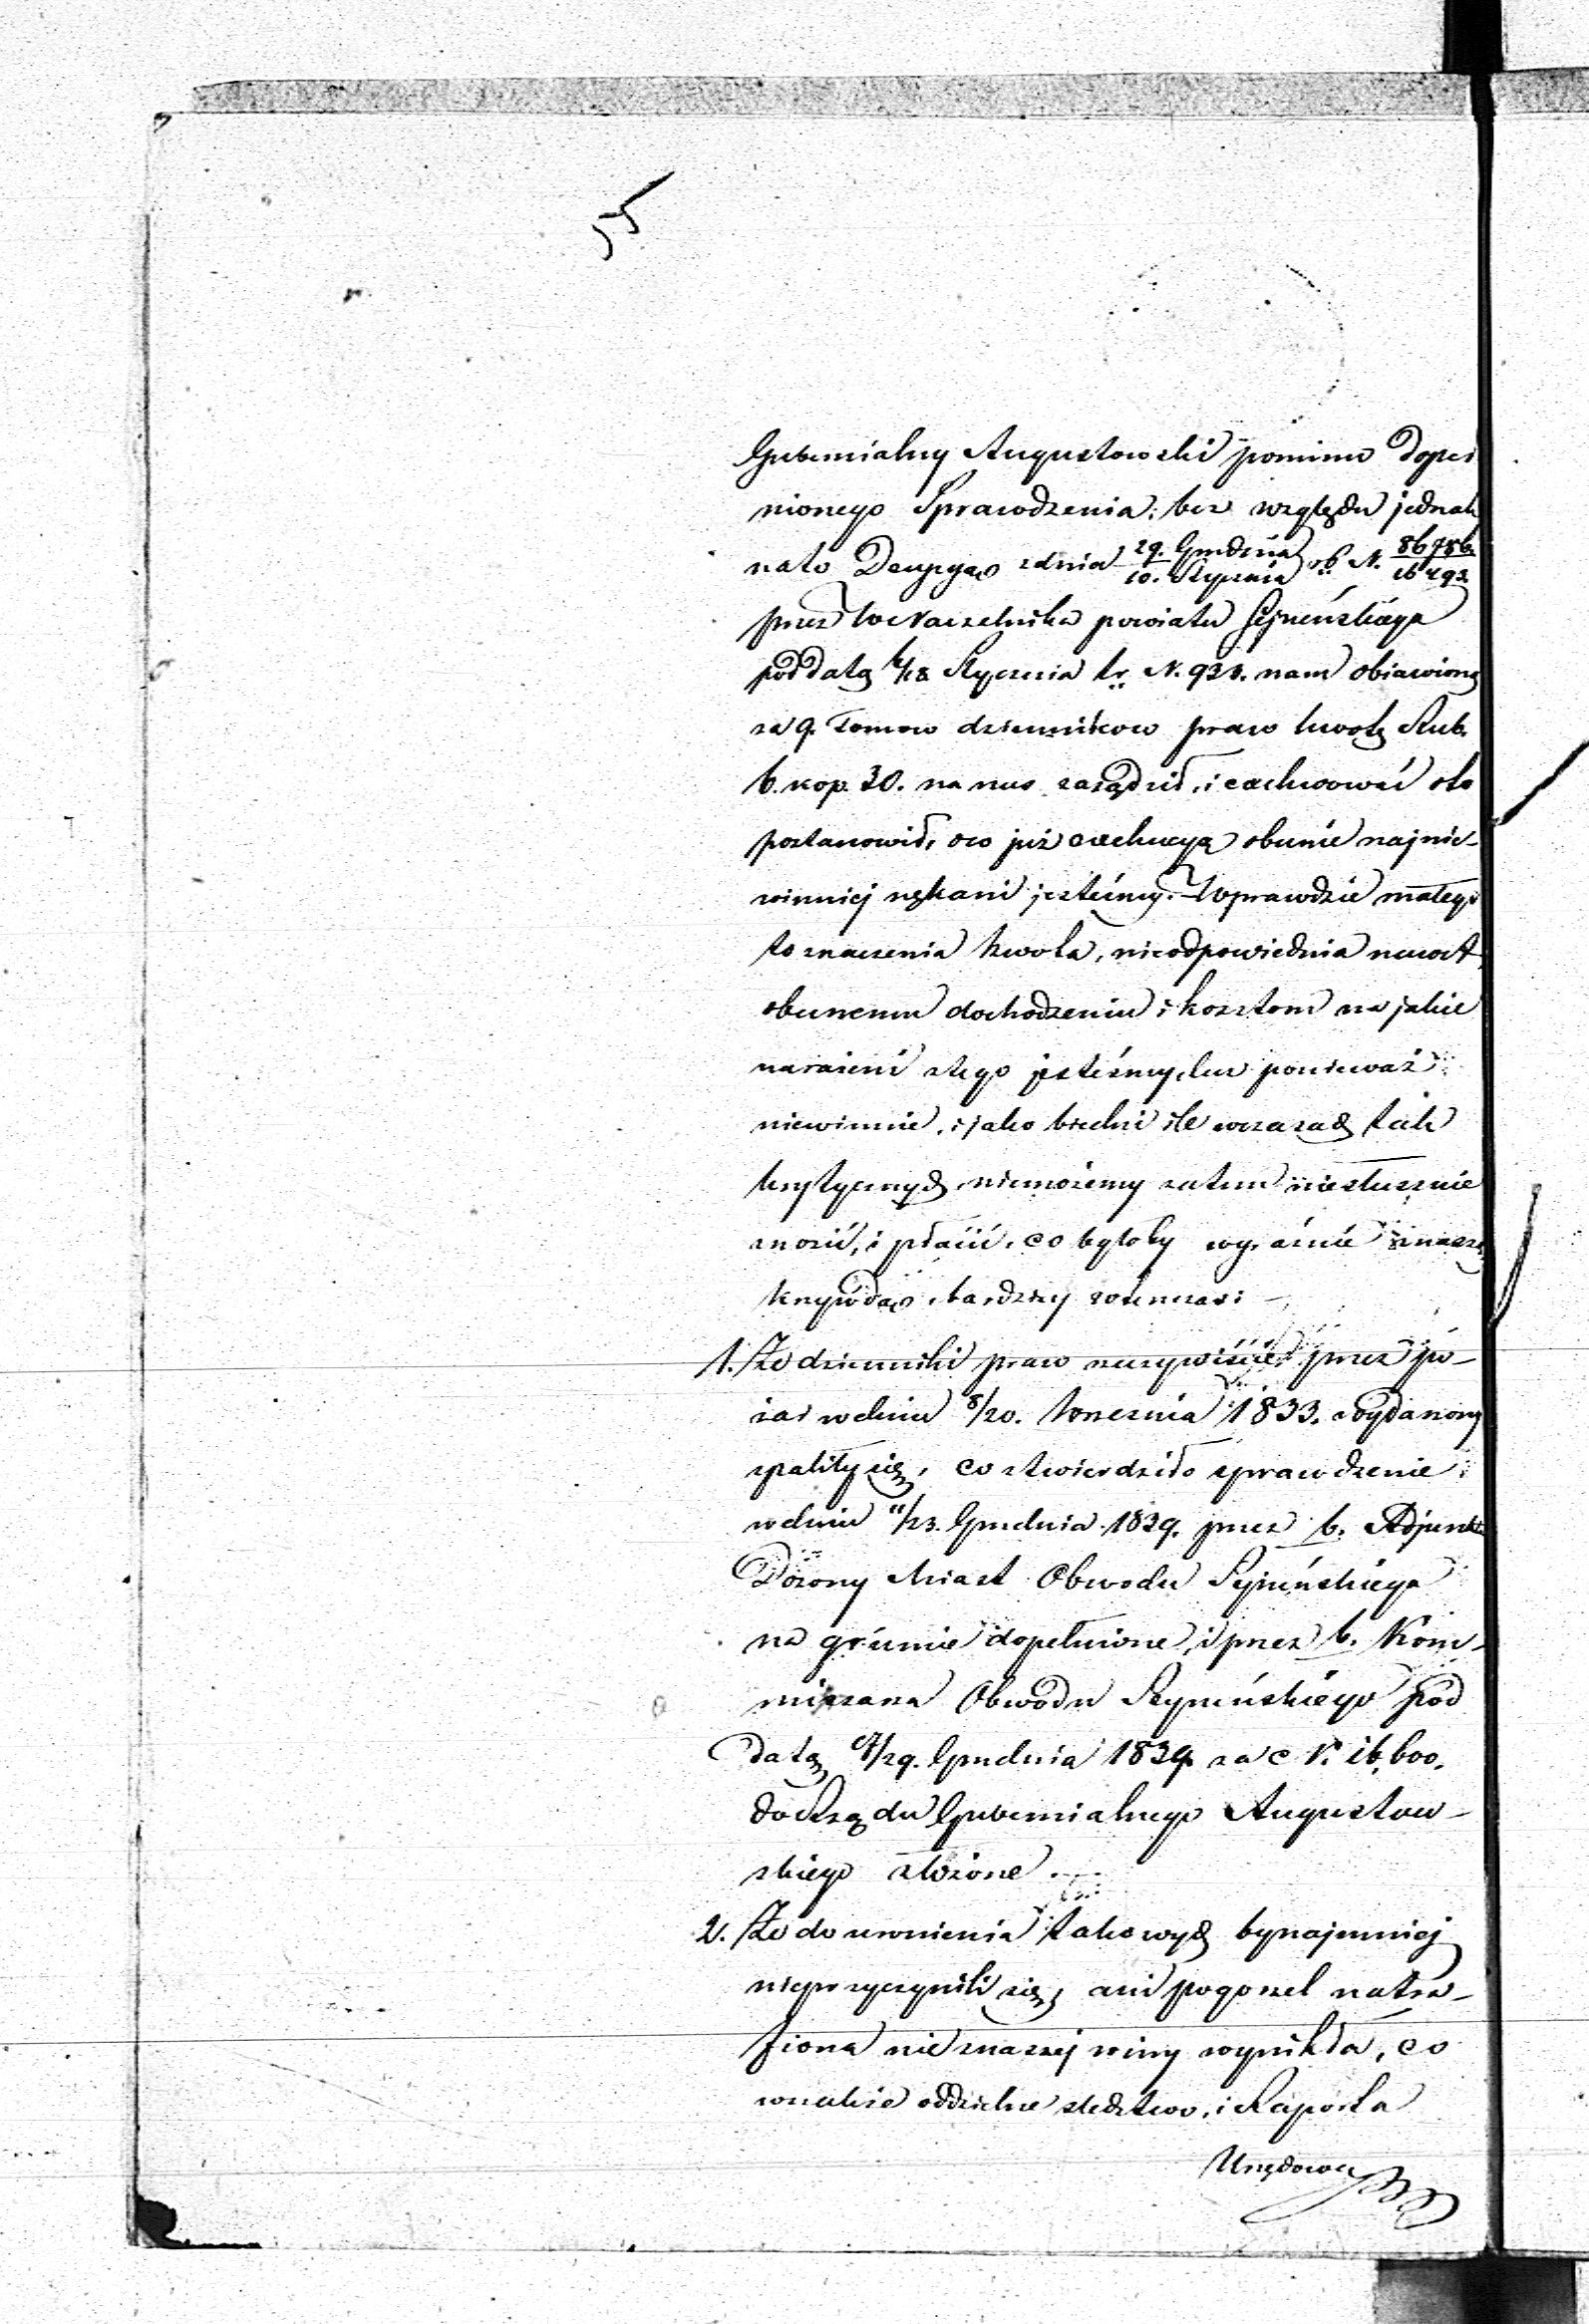 55
Gubernialny Augustowski pomimo dopeł
nionego Sprawdzenia, bez względu jednak
na to Decyzyą z dnia 29. Grudnia / 10. Stycznia rb N. 86786 / 16492
przez W Naczelnika powiatu Sejneńskiego
pod datą 6/18 Stycznia t.r. N. 931. nam obiawioną
za 9. tomow dziennikow praw kwotę Rub.
6. kop. 30. na nas zarządził, i exekwować
postanowił, o co już exekucyą obecnie najnie-
winniej nękani jesteśmy. Wprawdzie małego
to znaczenia kwota, nieodpowiednia nawet
obecnemu dochodzeniu i kosztom na jakie
narażeni z tego jesteśmy, lecz ponieważ
niewinnie, i jako biedni ile w czasach tak
krytycznych, niemożemy zatem niesłusznie
znosić, i płacić, co byłoby wyraźnie z naszą
krzywdą, bardziey wówczas: —
1. Że dzienniki praw rzeczywiście przez po-
żar w dniu 8/20. Września 1833. wydarzony
spaliły się, co stwierdziło sprawdzenie
w dniu 11/23. Grudnia 1839. przez b. Adjunkta
Dozory Miast Obwodu Sejneńskiego
na gruncie dopełnione, i przez b. Kom-
missarza Obwodu Seyneńskiego pod
datą 17/29. Grudnia 1839 za N. 16,600.
do Rządu Gubernialnego Augustow-
skiego złożone.
2. Że do uronienia takowych bynajmniej
nieprzyczynili się, ani pogorzel natra-
fiona nie z naszej winy wynikła, co
wszakże oddzielne śledztwo, i Raporta
Urzędowe